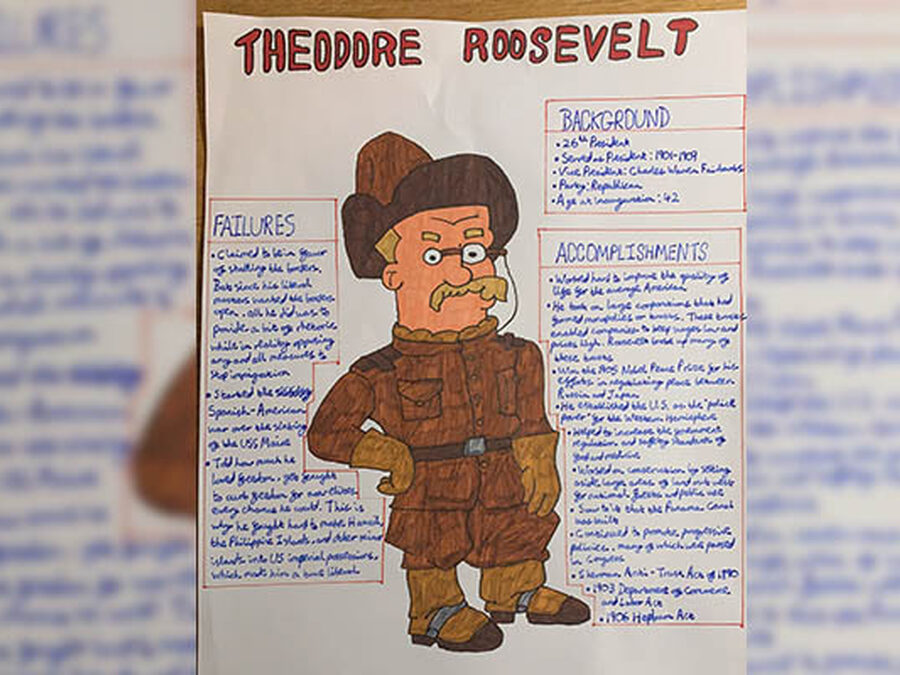 THEODORE ROOSEVELT
BACKGROUND
• 26th President
• Served as President: 1901-1909
• Vice President: Charles Warren Fairbanks
• Party: Republican
• Age at inauguration: 42
FAILURES
• Claimed to be in favour
of shutting the borders.
But since his liberal
masters wanted the borders
open, all he did was to
provide a bit of rhetoric
whilst in reality opposing
any and all measures to
stop immigration
• Started the
Spanish-American
war over the sinking
of the USS Maine
• Told how much he
loved freedom, yet fought
to curb freedom for non-whites
every chance he could. This is
why he fought hard to make Hawaii,
the Philippine Islands, and other minor
islands into US imperial possessions,
which made him a true liberal
ACCOMPLISHMENTS
• Worked hard to improve the quality of
life for the average American
• He took on large corporations that had
formed monopolies or trusts. These trusts
enabled companies to keep wages low and
prices high. Roosevelt broke up many of
these trusts
• Won the 1905 Nobel Peace Prize for his
efforts in negotiating peace between
Russia and Japan
• He established the U.S. as the "police
power" for the Western Hemisphere
• Helped to increase the government
regulation and safety standards of
food and medicine
• Worked on conservation by setting
aside large areas of land
for national forests and public use
• Saw to it that the Panama Canal
was built
• Continued to promote progressive
policies, many of which were passed
in Congress
• Sherman Anti-Trust Act of 1890
• 1903 Department of Commerce
and Labor Act
• 1906 Hepburn Act